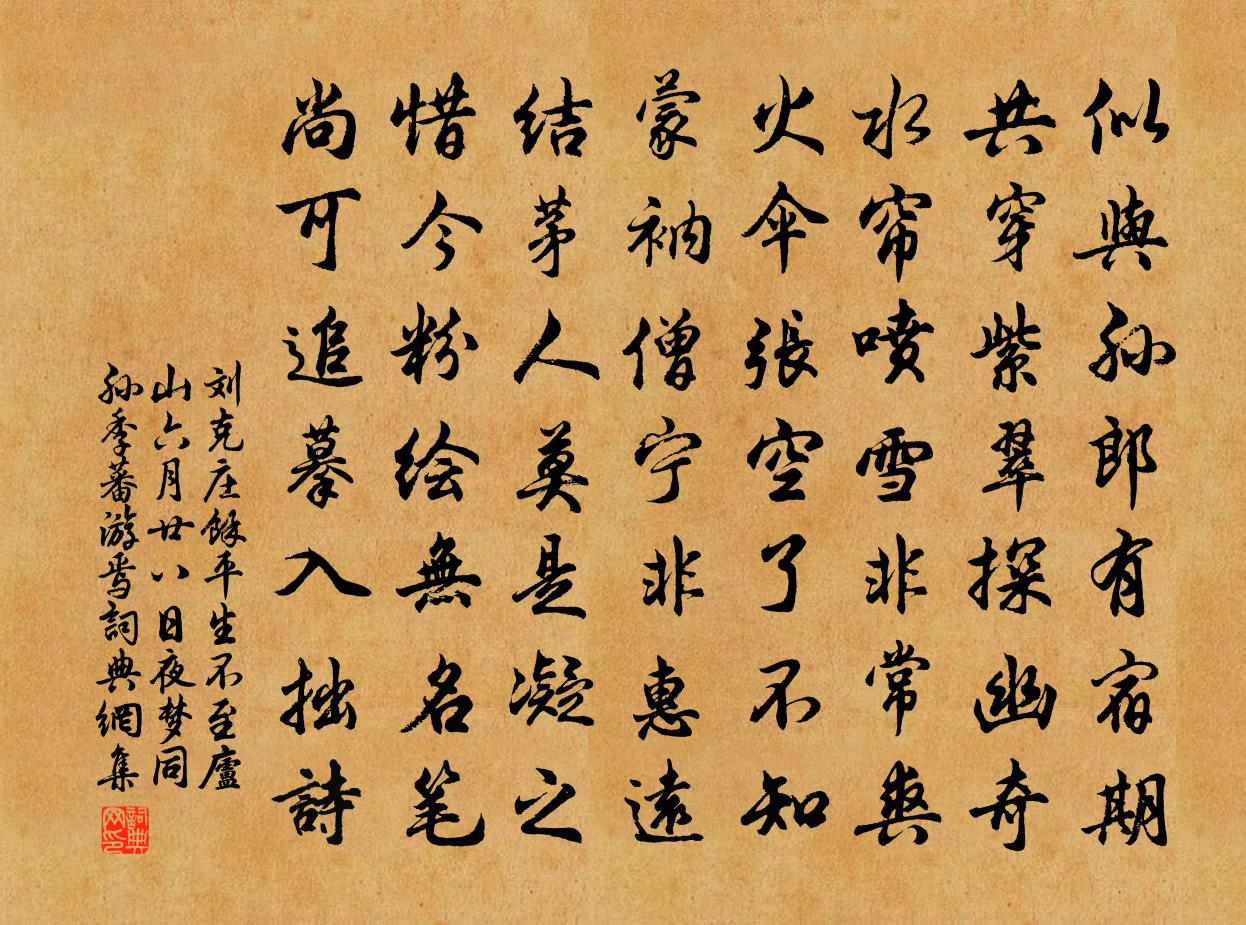 似與孙郎有宿期
共穿紫翠探幽奇
水帘喷雪非常爽
火伞張空了不知
蒙衲僧宁非惠遠
结茅人莫是凝之
惜今粉绘無名笔
尚可追摹入拙詩
刘克庄餘平生不至廬
山六月廿八日夜梦同
孙季蕃游焉詞典網集
詞典网印